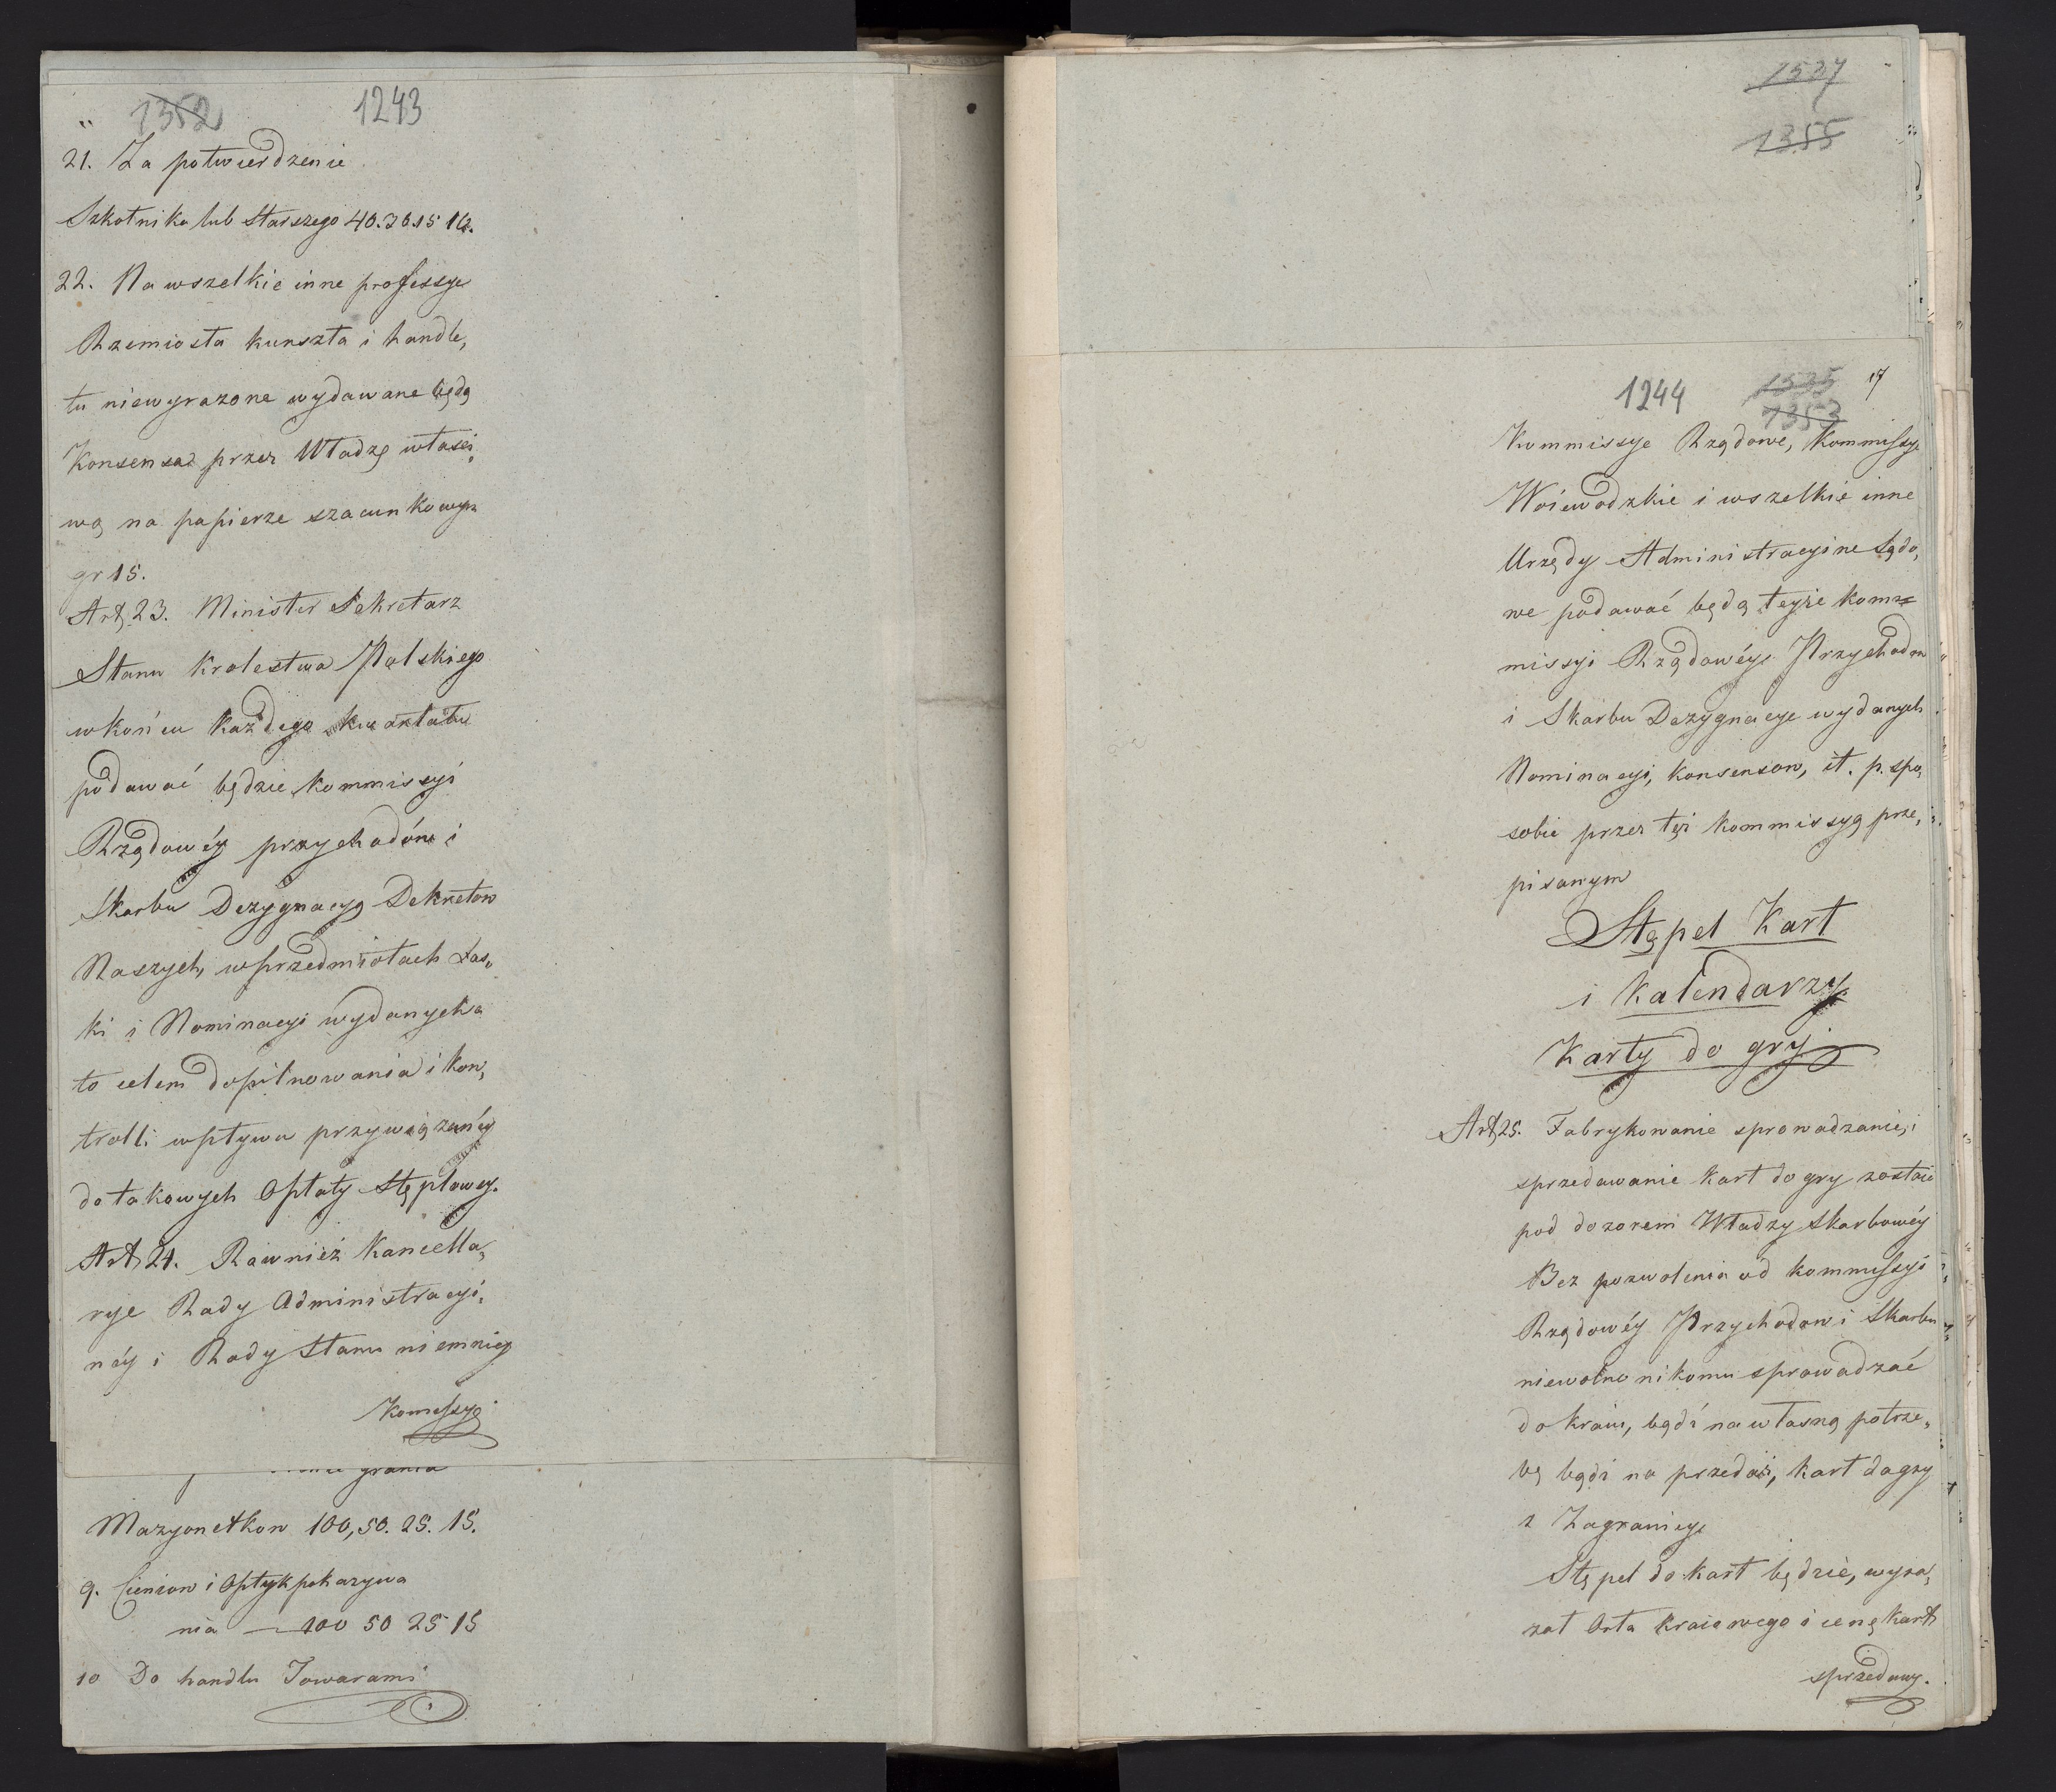 1352 1243
21. Za potwierdzenie
Szkolnika lub Starszego 40.30.15 12.
22. Na wszelkie inne professye
Rzemiosła kunszta i handle,
tu niewyrazone wydawane będą
Konsensa przez Władzę właści„
wą na papierze szacunkowym
gr 15.
Art, 23. Minister Sekretarz
Stanu Krolestwa Polskiego
wkońcu każdego kwartału
podawać będzie Kommissyi
Rządowéy przychodów i
Skarbu Dezygnacyą Dekretow
Naszych, wprzedmiotach Łas„
ki i Nominacyi wydanych a
to celem dopilnowania i kon„
trolli wpływu przywiązanéy
do takowych Opłaty Stęplowey.
Art 24. Rownież Kancella„
rye Rady Administracyi„
néy i Rady Stanu niemniey
Komissye
grania
Maryonetkow 100, 50. 25. 15.
9. Cieniow i Optyk pokazywa
nia — 100 50 25 15
10 Do handlu Towarami
1537
1355
1244 1535 17
1353
Kommissye Rządowe, Kommissye
Woiewodzkie i wszelkie inne
Urzędy Administracyine Sądo„
we podawać będą teyże Kom=
missyi Rządowéy Przychodow
i Skarbu Dezygnacye wydanych
Nominacyi, Konsensow, it. p. spo„
sobie przez tęż Kommissyą prze„
pisanym
Stępel Kart
i Kalendarzy
Karty do gry
Art, 25. Fabrykowanie sprowadzanie, i
sprzedawanie Kart do gry zostaie
pod dozorem Władzy Skarbowéy
Bez pozwolenia od Kommissyi
Rządowéy Przychodow i Skarbu
niewolno nikomu sprowadzać
do kraiu, bądź na własną potrze„
bę bądź na przedaż, kart do gry
z Zagranicy
Stępel do kart będzie, wyra„
zał Orła kraiowego i cenę kart
sprzedawy.